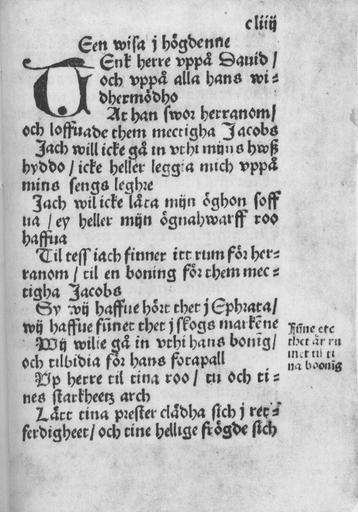 cliiij
Een wisa j högdenne
TEnk herre vppå Dauid/
och vppå alla hans wi=
dhermödho
At han swor herranom/
och loffuade them mectigha Jacobs
Jach will icke gå in vthi mijns hwß
hyddo/ icke heller leggia mich vppå
mins sengs leghre
Jach wil icke låta mijn öghon soff
ua/ ey heller mijn ögnahwarff roo
haffua
Til tess iach finner itt rum för her=
ranom/ til en boning för them mec=
tigha Jacobs
Sy wij haffue hört thet j Ephrata/
wij haffue funet thet j skogs markēne
Wij wilie gå in vthi hans bonig/
och tilbidia för hans fotapall
Vp herre til tina roo/ tu och ti=
nes starkheetz arch
Lått tina prester clädha sich j ret=
ferdigheet/ och tine hellige frögde sich
Fūne etc
thet är ru
met til ti
na boonig